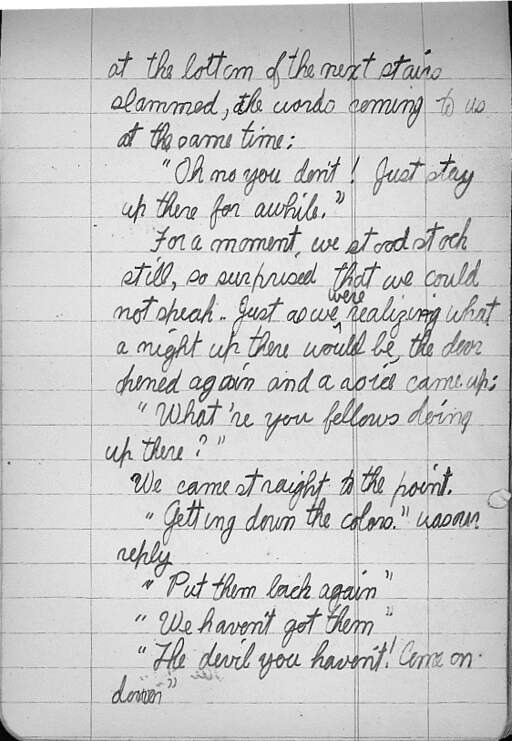 at the bottom of the next stairs
slammed, the words coming to us
at the same time:
"Oh no you don't! Just stay
up there for awhile."
For a moment, we stood stock
still, so surprised that we could
not speak. Just as we were realizing what
a night up there would be, the door
opened again and a voice came up:
"What 're you fellows doing
up there?"
We came straight to the point.
"Getting down the colors." was our
reply
"Put them back again"
"We haven't got them"
"The devil you haven't! Come on
down"